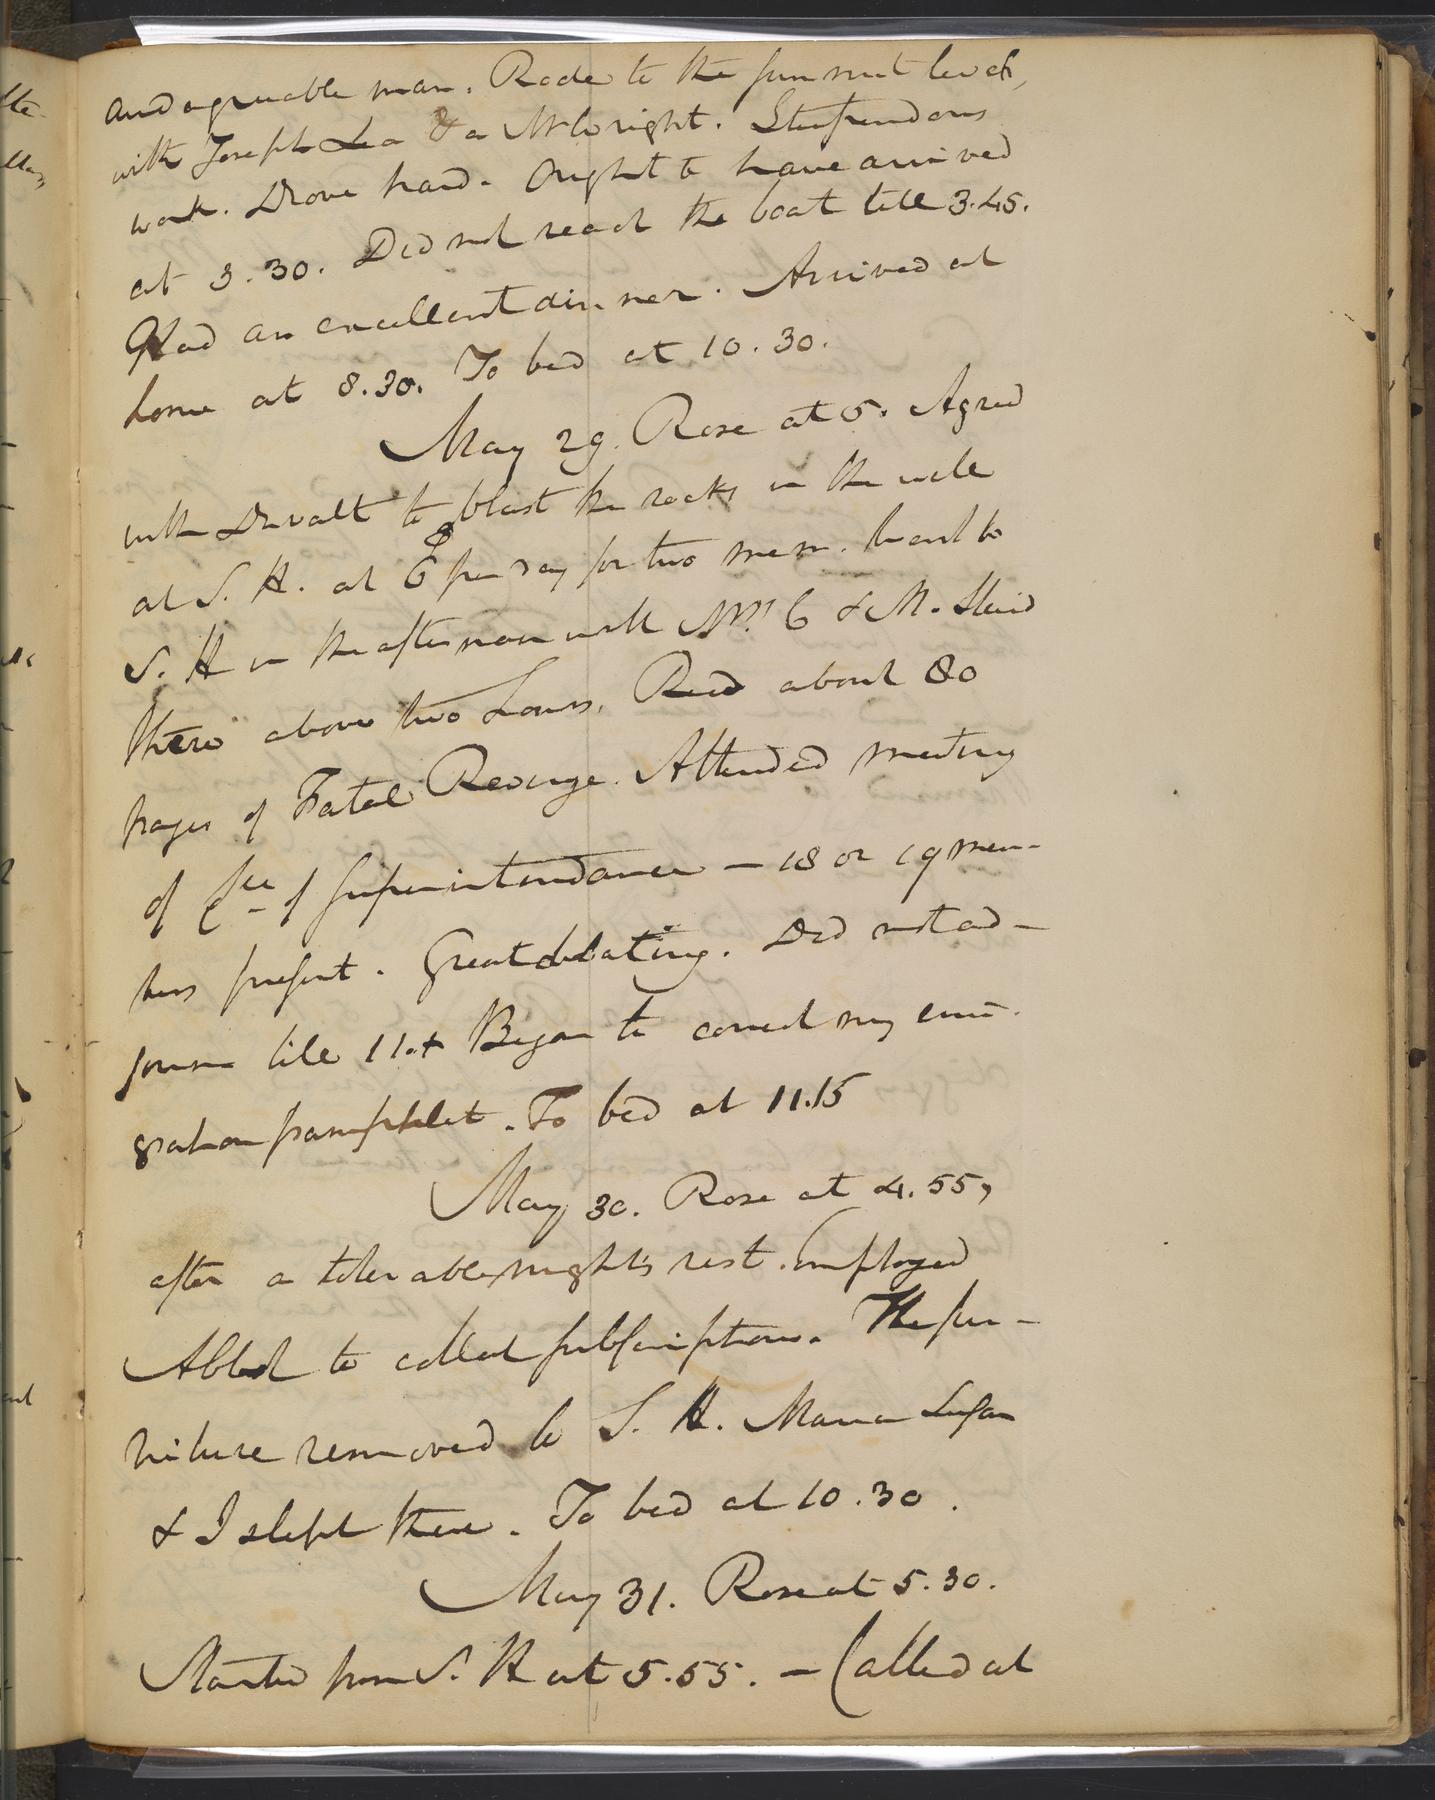 and agreeable man. Rode to the summit level,
with Joseph Lea & a Mr Wright. Stupendous
work. Drove hard. Ought to have arrived
at 3.30. Did not reach the boat till 3.45.
Had an excellent dinner. Arrived at
home at 8.30. To bed at 10.30.
May 29. Rose at 5. Agreed
with Duvalt to blast the rocks in the well
at S. H. at 6$ per day for two men. Went to
S. H in the afternoon with Mrs C & M. Staid
there above two hours. Read about 80
pages of Fatal Revenge. Attended meeting
of Cee of Superintendance — 18 or 19 mem-
bers present. Great debating. Did not ad-
journ till 11. + Began to correct my emi-
gration pamphlet. To bed at 11.15
May 30. Rose at 4.55,
after a tolerable night's rest. Employed
Abbot to collect subscriptions. The fur-
niture removed to S. H. Maria
& I slept there. To bed at 10.30.
May 31. Rose at 5.30.
Started from S. H at 5.55. — Called at